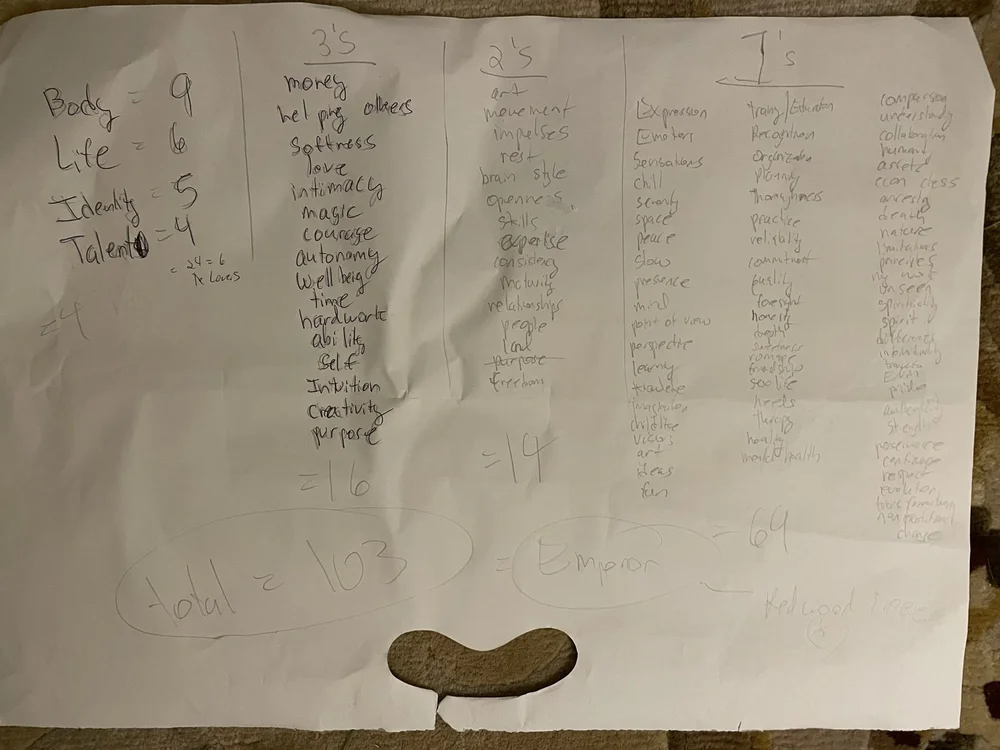 Body = 9
Life = 6
Identity = 5
Talent = 4
= 24 = 6
Lovers
= 4
3's
money
helping others
softness
love
intimacy
magic
courage
autonomy
well being
time
hardwork
ability
self
Intuition
creativity
purpose
= 16
2's
art
movement
impulses
rest
brain style
openness
skills
expertise
considery
maturity
relationships
people
land
purpose
freedom
= 14
1's
Expression
Emotions
Sensations
chill
serenity
space
peace
slow
presence
mind
point of view
perspective
learny
imagination
childlike
visions
art
ideas
fun
Recognition
planning
thoroughness
practice
reliability
commitment
quality
foresight
honesty
depth
romance
friendship
sex life
needs
therapy
healing
mental health
comparison
collaboration
econ class
ancestry
death
nature
limitations
unseen
spirituality
spirit
differences
individuality
pride
authenticity
strength
perseverance
respect
evolution
change
= 64
total = 103
= Emperor
Redwood Tree